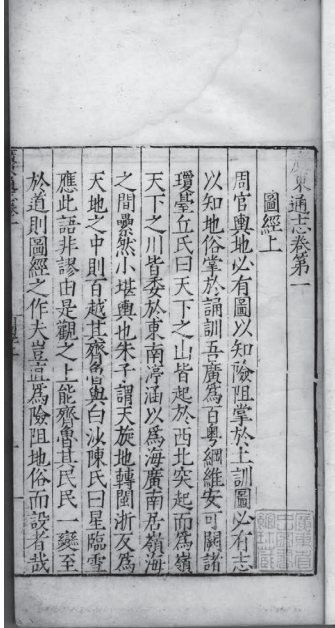 廣東通志卷第一
圖經上
周官輿地必有圖以知險阻掌於土訓圖必有志
以知地俗掌於誦訓吾廣爲百粵綱維安可闕諸
瓊臺丘氏曰天下之山皆起於西北突起而爲嶺
天下之川皆委於東南渟涵以爲海廣南居嶺海
之間纍然小堪輿也朱子謂天旋地轉閩浙反爲
天地之中則百越其齊魯與白沙陳氏曰星臨雪
應此語非謬由是觀之上能齊魯其民民一變至
於道則圖經之作夫豈亶爲險阻地俗而設者哉